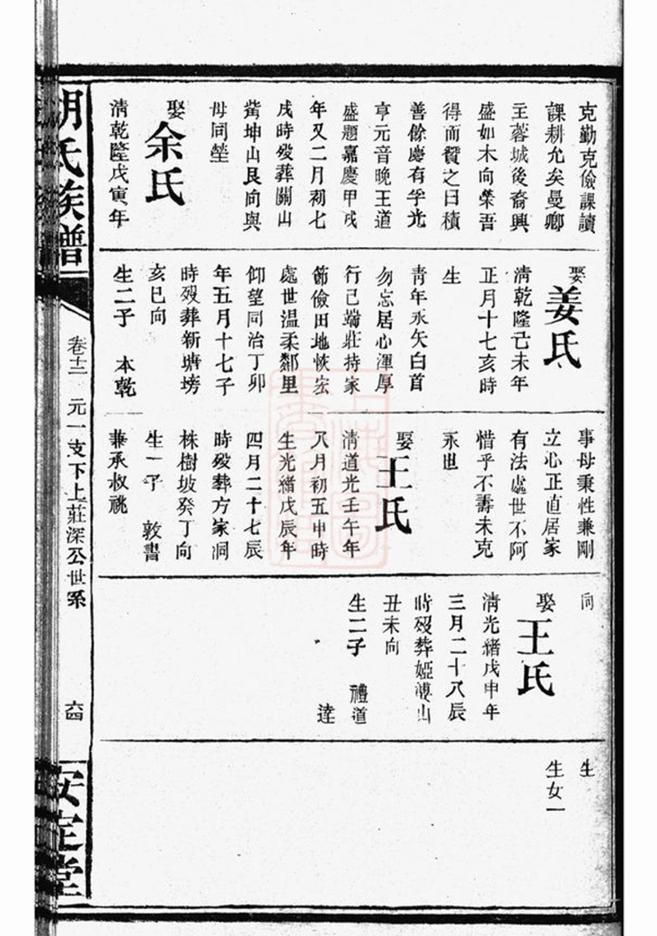 克勤克儉課讀
課耕允矣曼卿
主蓉城後裔興
盛如木向榮吾
得而贊之曰積
善餘慶有孚光
亨元音晚王道
盛題嘉慶甲戌
年又二月初七
戌時歿葬關山
嘴坤山艮向與
母同塋
娶余氏
清乾隆戊寅年
娶姜氏
清乾隆己未年
正月十七亥時
生
青年永矢白首
勿忘居心渾厚
行己端莊持家
節儉田地恢宏
處世温柔鄰里
仰望同治丁卯
年五月十七子
時歿葬新塘塝
亥巳向
生二子 本乾
事母秉性兼剛
立心正直居家
有法處世不阿
惜乎不壽未克
永世
娶王氏
清道光壬午年
八月初五申時
生光緒戊辰年
四月二十七辰
時歿葬方家洞
株樹坡癸丁向
生一子 敦書
兼承叔祧
向
娶王氏
清光緒戊申年
三月二十八辰
時歿葬婭淒山
丑未向
生二子 禮道
達
生
生女一
胡氏族譜
卷十二 元一支下上莊深公世系
六四
安定堂